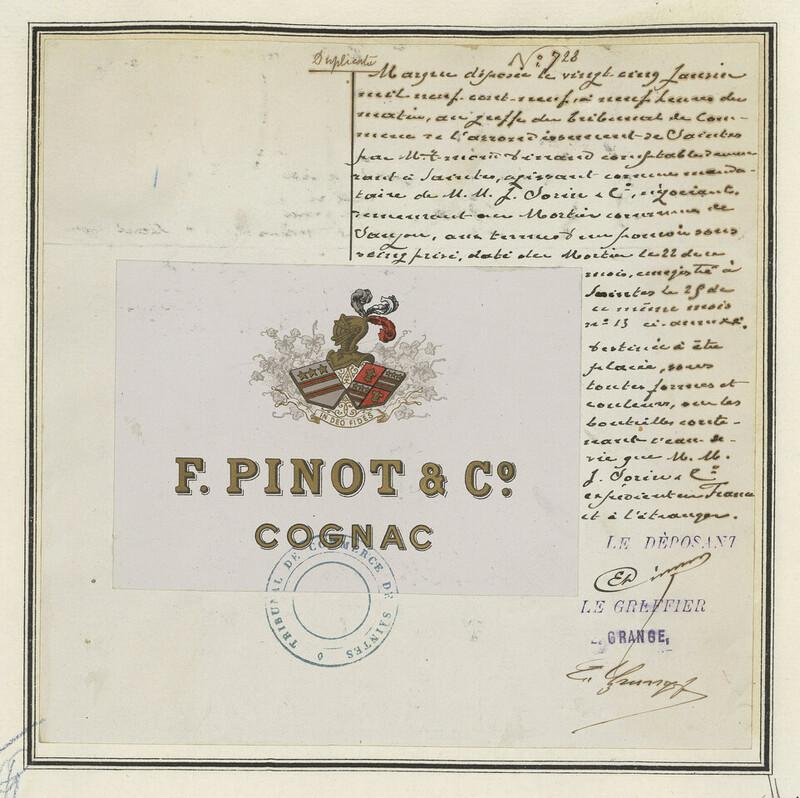 Duplicata
No 728
Marque déposée le vingt-cinq Janvier
mil neuf-cent-neuf, à neuf heures du
matin, au greffe du tribunal de Com-
merce de l'arrondissement de Saintes
par Mr comptable demeu-
rant à Saintes, agissant comme manda-
taire de M. M. J. Sorin & Cie, négociants,
demeurant au Mortier commune de
Saujon, aux termes d'un pouvoir sous
seing privé, daté du Mortier le 22 de ce
mois, enregistré à
Saintes le 25 de
ce même mois
no 15 ci-annexé.
Destinée à être
placée, sous
toutes formes et
couleurs, sur les
bouteilles conte-
nant l'eau-de-
vie que M. M.
J. Sorin & Cie
expédient en France
et à l'étranger.
IN DEO FIDES
F. PINOT & Co.
COGNAC
TRIBUNAL DE COMMERCE DE SAINTES
LE DÉPOSANT
LE GREFFIER
GRANGE,